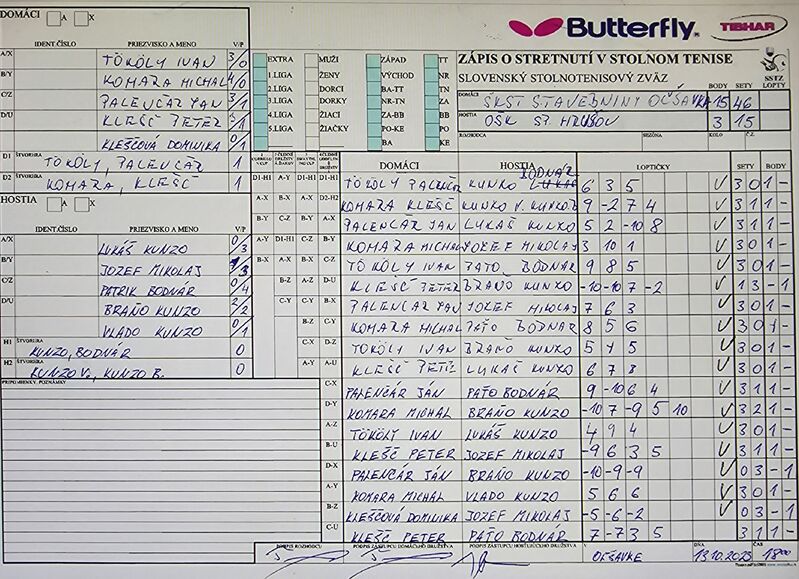 DOMÁCI A X
IDENT.ČÍSLO PRIEZVISKO A MENO V/P
A/X TÖKÖLY IVAN 3/0
B/Y KOMARA MICHAL 4/0
C/Z PALENČÁR JAN 3/1
D/U KLEŠČ PETER 3/1
KLEŠČOVÁ DOMINIKA 1
D1 ŠTVORHRA TÖKÖLY, PALENČÁR 1
D2 ŠTVORHRA KOMARA, KLEŠČ 1
HOSTIA A X
IDENT.ČÍSLO PRIEZVISKO A MENO V/P
A/X LUKÁŠ KUNZO 0/3
B/Y JOZEF MIKOLAJ /3
C/Z PATRIK BODNÁR 0/4
D/U BRAŇO KUNZO 2/2
VLADO KUNZO 0/1
H1 ŠTVORHRA KUNZO, BODNÁR 0
H2 ŠTVORHRA KUNZO V., KUNZO B. 0
PRIPOMIENKY, POZNÁMKY
EXTRA MUŽI ZÁPAD TT
1.LIGA ŽENY VÝCHOD NR
2.LIGA DORCI BA-TT TN
3.LIGA DORKY NR-TN ZA
4.LIGA ŽIACI ZA-BB BB
5.LIGA ŽIAČKY PO-KE PO
BA KE
Butterfly TIBHAR
ZÁPIS O STRETNUTÍ V STOLNOM TENISE
SLOVENSKÝ STOLNOTENISOVÝ ZVÄZ SSTZ
BODY SETY LOPTY
DOMÁCI ŠKST STAVEBNINY OČŠAVKA 15 46
HOSTIA OŠK ST. HRUŠOV 3 15
ROZHODCA SEZÓNA KOLO Č.Z.
DOMÁCI HOSTIA LOPTIČKY SETY BODY
D1-H1 A-Y D1-H1 D1-H1 TÖKÖLY PALENČÁR KUNKO BODNÁR 6 3 5 V 3 0 1 -
A-X B-X A-X D2-H2 KOMARA KLEŠČ KUNKO V. KUNKO B 9 -2 7 4 V 3 1 1 -
B-Y C-Z B-Y A-X PALENČÁR JÁN LUKÁŠ KUNKO 5 2 -10 8 V 3 1 1 -
A-Y D1-H1 C-Z B-Y KOMARA MICHAL JOZEF MIKOLAJ 3 10 1 V 3 0 1 -
B-X A-X B-X C-Z TÖKÖLY IVAN PAŤO BODNÁR 9 8 5 V 3 0 1 -
B-Z A-Z D-U KLEŠČ PETER BRAŇO KUNKO -10 -10 7 -2 V 1 3 - 1
C-Y C-Y B-X PALENČÁR JAN JOZEF MIKOLAJ 7 6 3 V 3 0 1 -
B-Z C-Y KOMARA MICHAL PAŤO BODNAR 8 5 6 V 3 0 1 -
C-X D-Z TÖKÖLY IVAN BRAŇO KUNKO 5 4 5 V 3 0 1 -
A-Y A-U KLEŠČ PETER LUKÁŠ KUNKO 6 7 8 V 3 0 1 -
C-X PALENČÁR JÁN PAŤO BODNÁR 9 -10 6 4 V 3 1 1 -
D-Y KOMARA MICHAL BRAŇO KUNZO -10 7 -9 5 10 V 3 2 1 -
A-Z TÖKÖLY IVAN LUKÁŠ KUNZO 4 9 4 V 3 0 1 -
B-U KLEŠČ PETER JOZEF MIKOLAJ -9 6 3 5 V 3 1 1 -
D-X PALENČÁR JÁN BRAŇO KUNZO -10 -9 -9 V 0 3 - 1
A-Y KOMARA MICHAL VLADO KUNZO 5 6 6 V 3 0 1 -
B-Z KLEŠČOVÁ DOMINIKA JOZEF MIKOLAJ -5 -6 -2 V 0 3 - 1
C-U KLEŠČ PETER PAŤO BODNÁR 7 -7 3 5 3 1 1 -
PODPIS ROZHODCU PODPIS ZÁSTUPCU DOMÁCEHO DRUŽSTVA PODPIS ZÁSTUPCU HOSŤUJÚCEHO DRUŽSTVA V OČŠAVKE DŇA 13.10.2023 ČAS 18:00